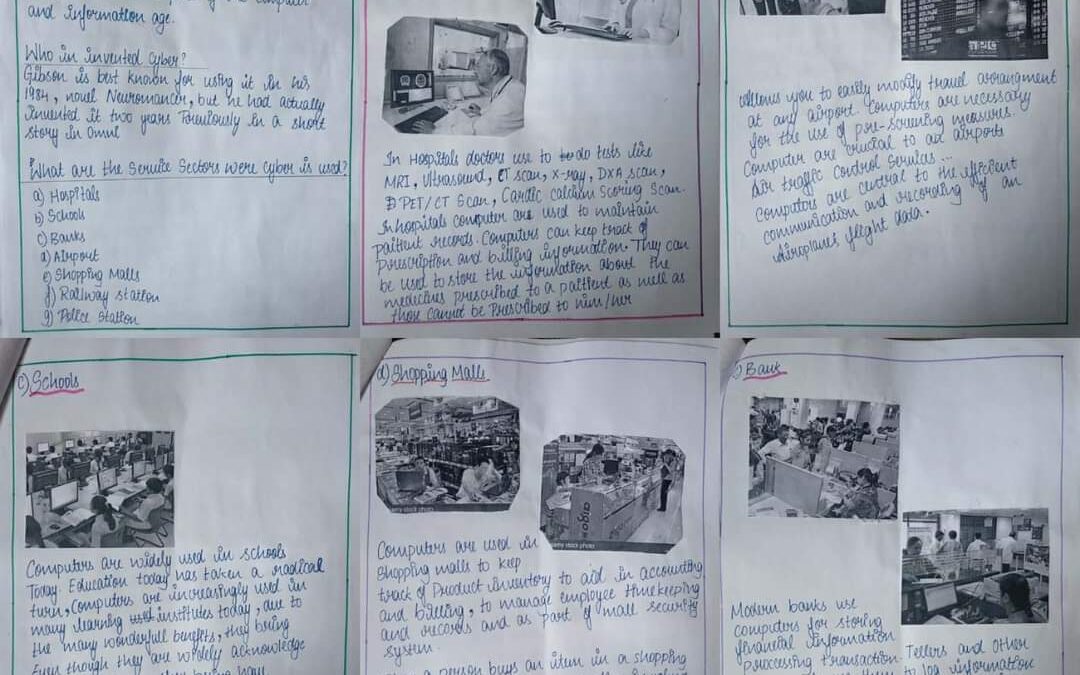 and information age.
Who in invented Cyber?
Gibson is best known for using it in his
1984, novel Neuromancer, but he had actually
invented it two years Previously in a short
story in Omni
What are the Service Sectors were cyber is used?
a) Hospitals
b) Schools
c) Banks
d) Airport
e) Shopping Malls
f) Railway station
g) Police Station
In Hospitals doctors use to do tests like
MRI, Ultrasound, CT scan, X-ray, DXA scan,
PET/CT Scan, Cardic calcium Scoring Scan.
In hospitals computer are used to maintain
paitient records. Computers can keep track of
Prescription and billing information. They can
be used to store the information about the
medicines prescribed to a paitient as well as
those cannot be Prescribed to him/her
allows you to easily modify travel arrangment
at any airport. Computers are necessary
for the use of pre-screening measures.
Computer are crucial to aid airports
Air traffic control Serwias...
Computers are central to the efficient
communication and recording of an
Airoplanes flight data.
c) Schools
Computers are widely used in schools
Today. Education today has taken a radical
turn, computers are increasingly used in
many learning institutes today, due to
the many wonderful benefits, they bring
Even though they are widely acknowledge
d) Shopping Malls
alamy stock photo
alamy stock photo
Computers are used in
Shopping malls to keep
track of Product inventory to aid in accounting
and billing, to manage employee timekeeping
and records and as part of mall security
system.
a person buys an item in a shopping
Bank
Modern banks use
computers for storing
financial information
processing transaction.
Tellers and other
to log information